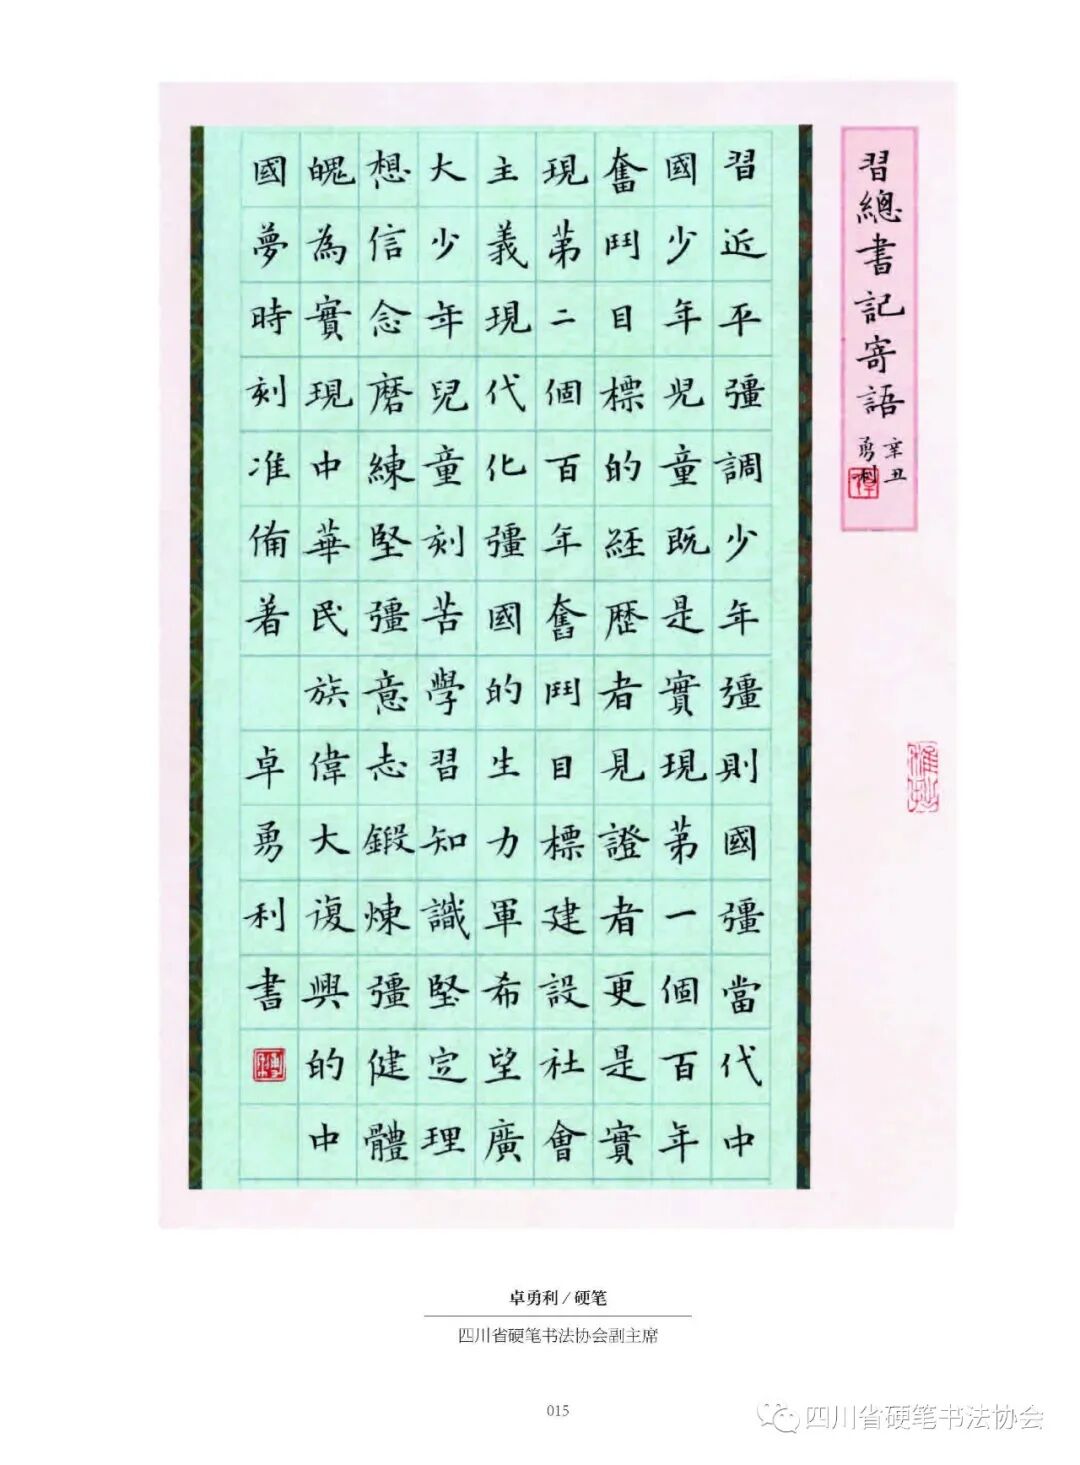 習總書記寄語
辛丑
勇利
習近平彊調少年彊則國彊當代中
國少年兒童既是實現第一個百年
奮鬥目標的經歷者見證者更是實
現第二個百年奮鬥目標建設社會
主義現代化彊國的生力軍希望廣
大少年兒童刻苦學習知識堅定理
想信念磨練堅彊意志鍛煉彊健體
魄為實現中華民族偉大復興的中
國夢時刻准備着 卓勇利書
卓勇利/硬笔
四川省硬笔书法协会副主席
015
四川省硬笔书法协会